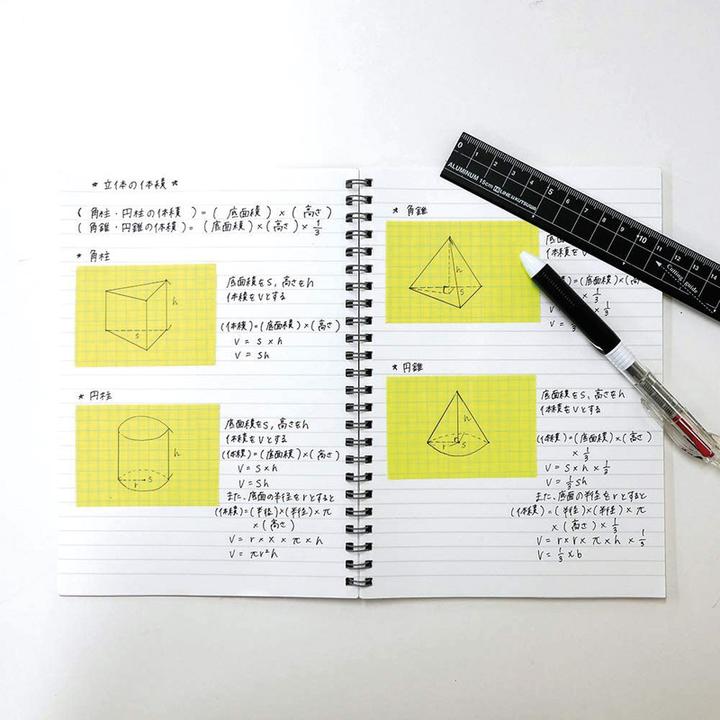 * 立体の体積 *
(角柱・円柱の体積) = (底面積) × (高さ)
(角錐・円錐の体積) = (底面積) × (高さ) × 1/3
* 角柱
h
S
底面積をS, 高さをh
体積をVとする
(体積) = (底面積) × (高さ)
V = S × h
V = Sh
* 円柱
h
r S
底面積をS, 高さをh
体積をVとする
(体積) = (底面積) × (高さ)
V = S × h
V = Sh
また、底面の半径をrとすると
(体積) = (半径) × (半径) × π
× (高さ)
V = r × x × π × h
V = πr²h
* 角錐
h
S
底面積を
体積を
(高さ)
× 1/3
V =
× 1/3
V = 1/3
* 円錐
h
r S
底面積をS, 高さをh
体積をVとする
(体積) = (底面積) × (高さ)
× 1/3
V = S × h × 1/3
V = 1/3 Sh
また、底面の半径をrとすると
(体積) = (半径) × (半径) × π
× (高さ) × 1/3
V = r × r × π × h × 1/3
V = 1/3 × b
0 1 2 3 4 5 6 7 8 9 10 11 12 13 14
ALUMINUM 15cm
Cutting guide